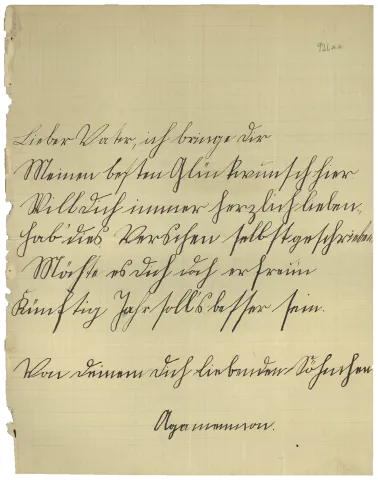 926 a a
Lieber Vater, ich bringe dir
Meinen besten Glückwunsch hier
Will dich immer herzlich lieben,
hab' dies Verschen selbst geschrieben
Möchte es dich doch erfreun
Künftig Jahr soll's besser sein.
Von deinem dich liebenden Söhnchen
Agamemnon.